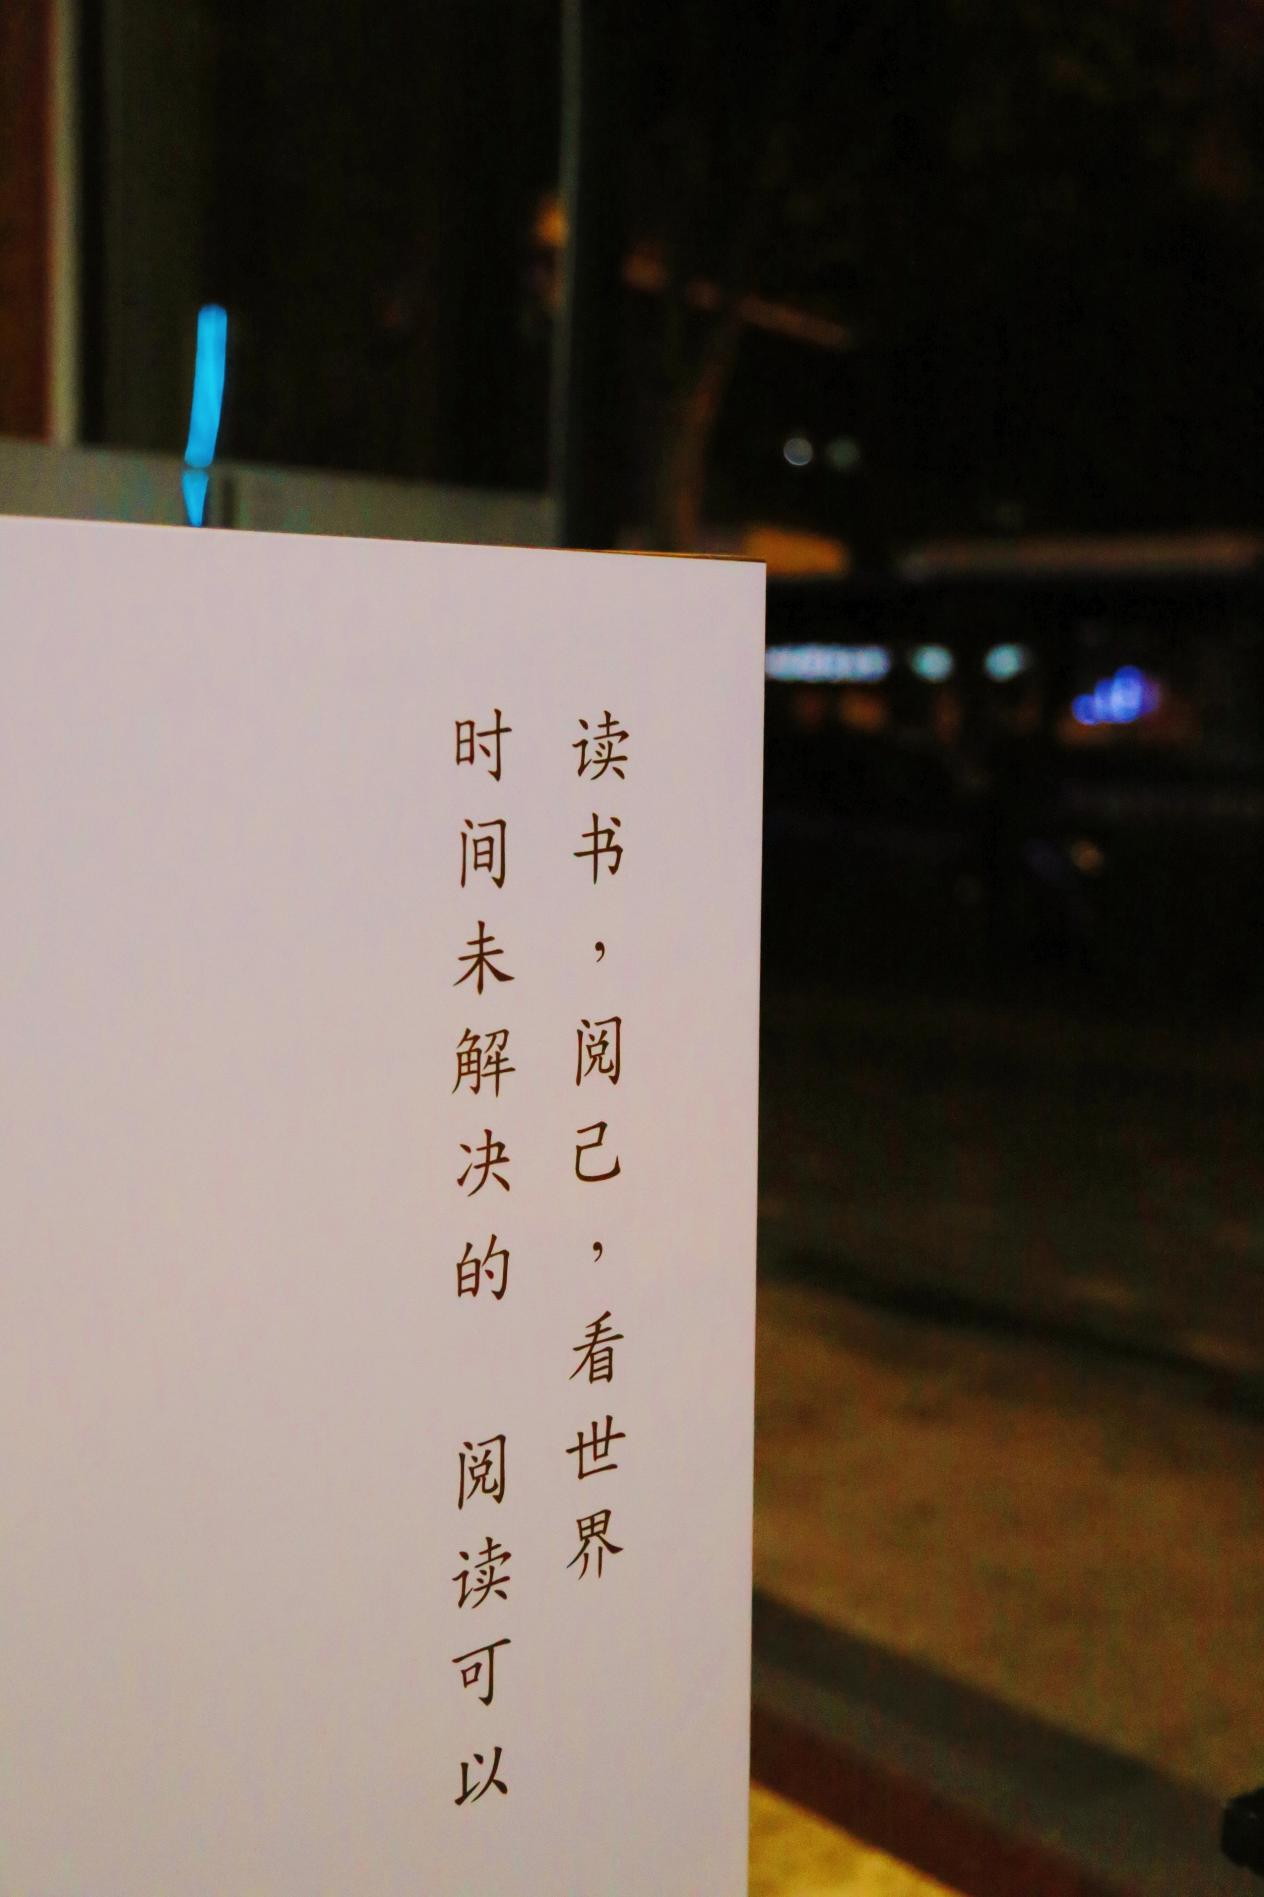 读书，阅己，看世界
时间未解决的 阅读可以